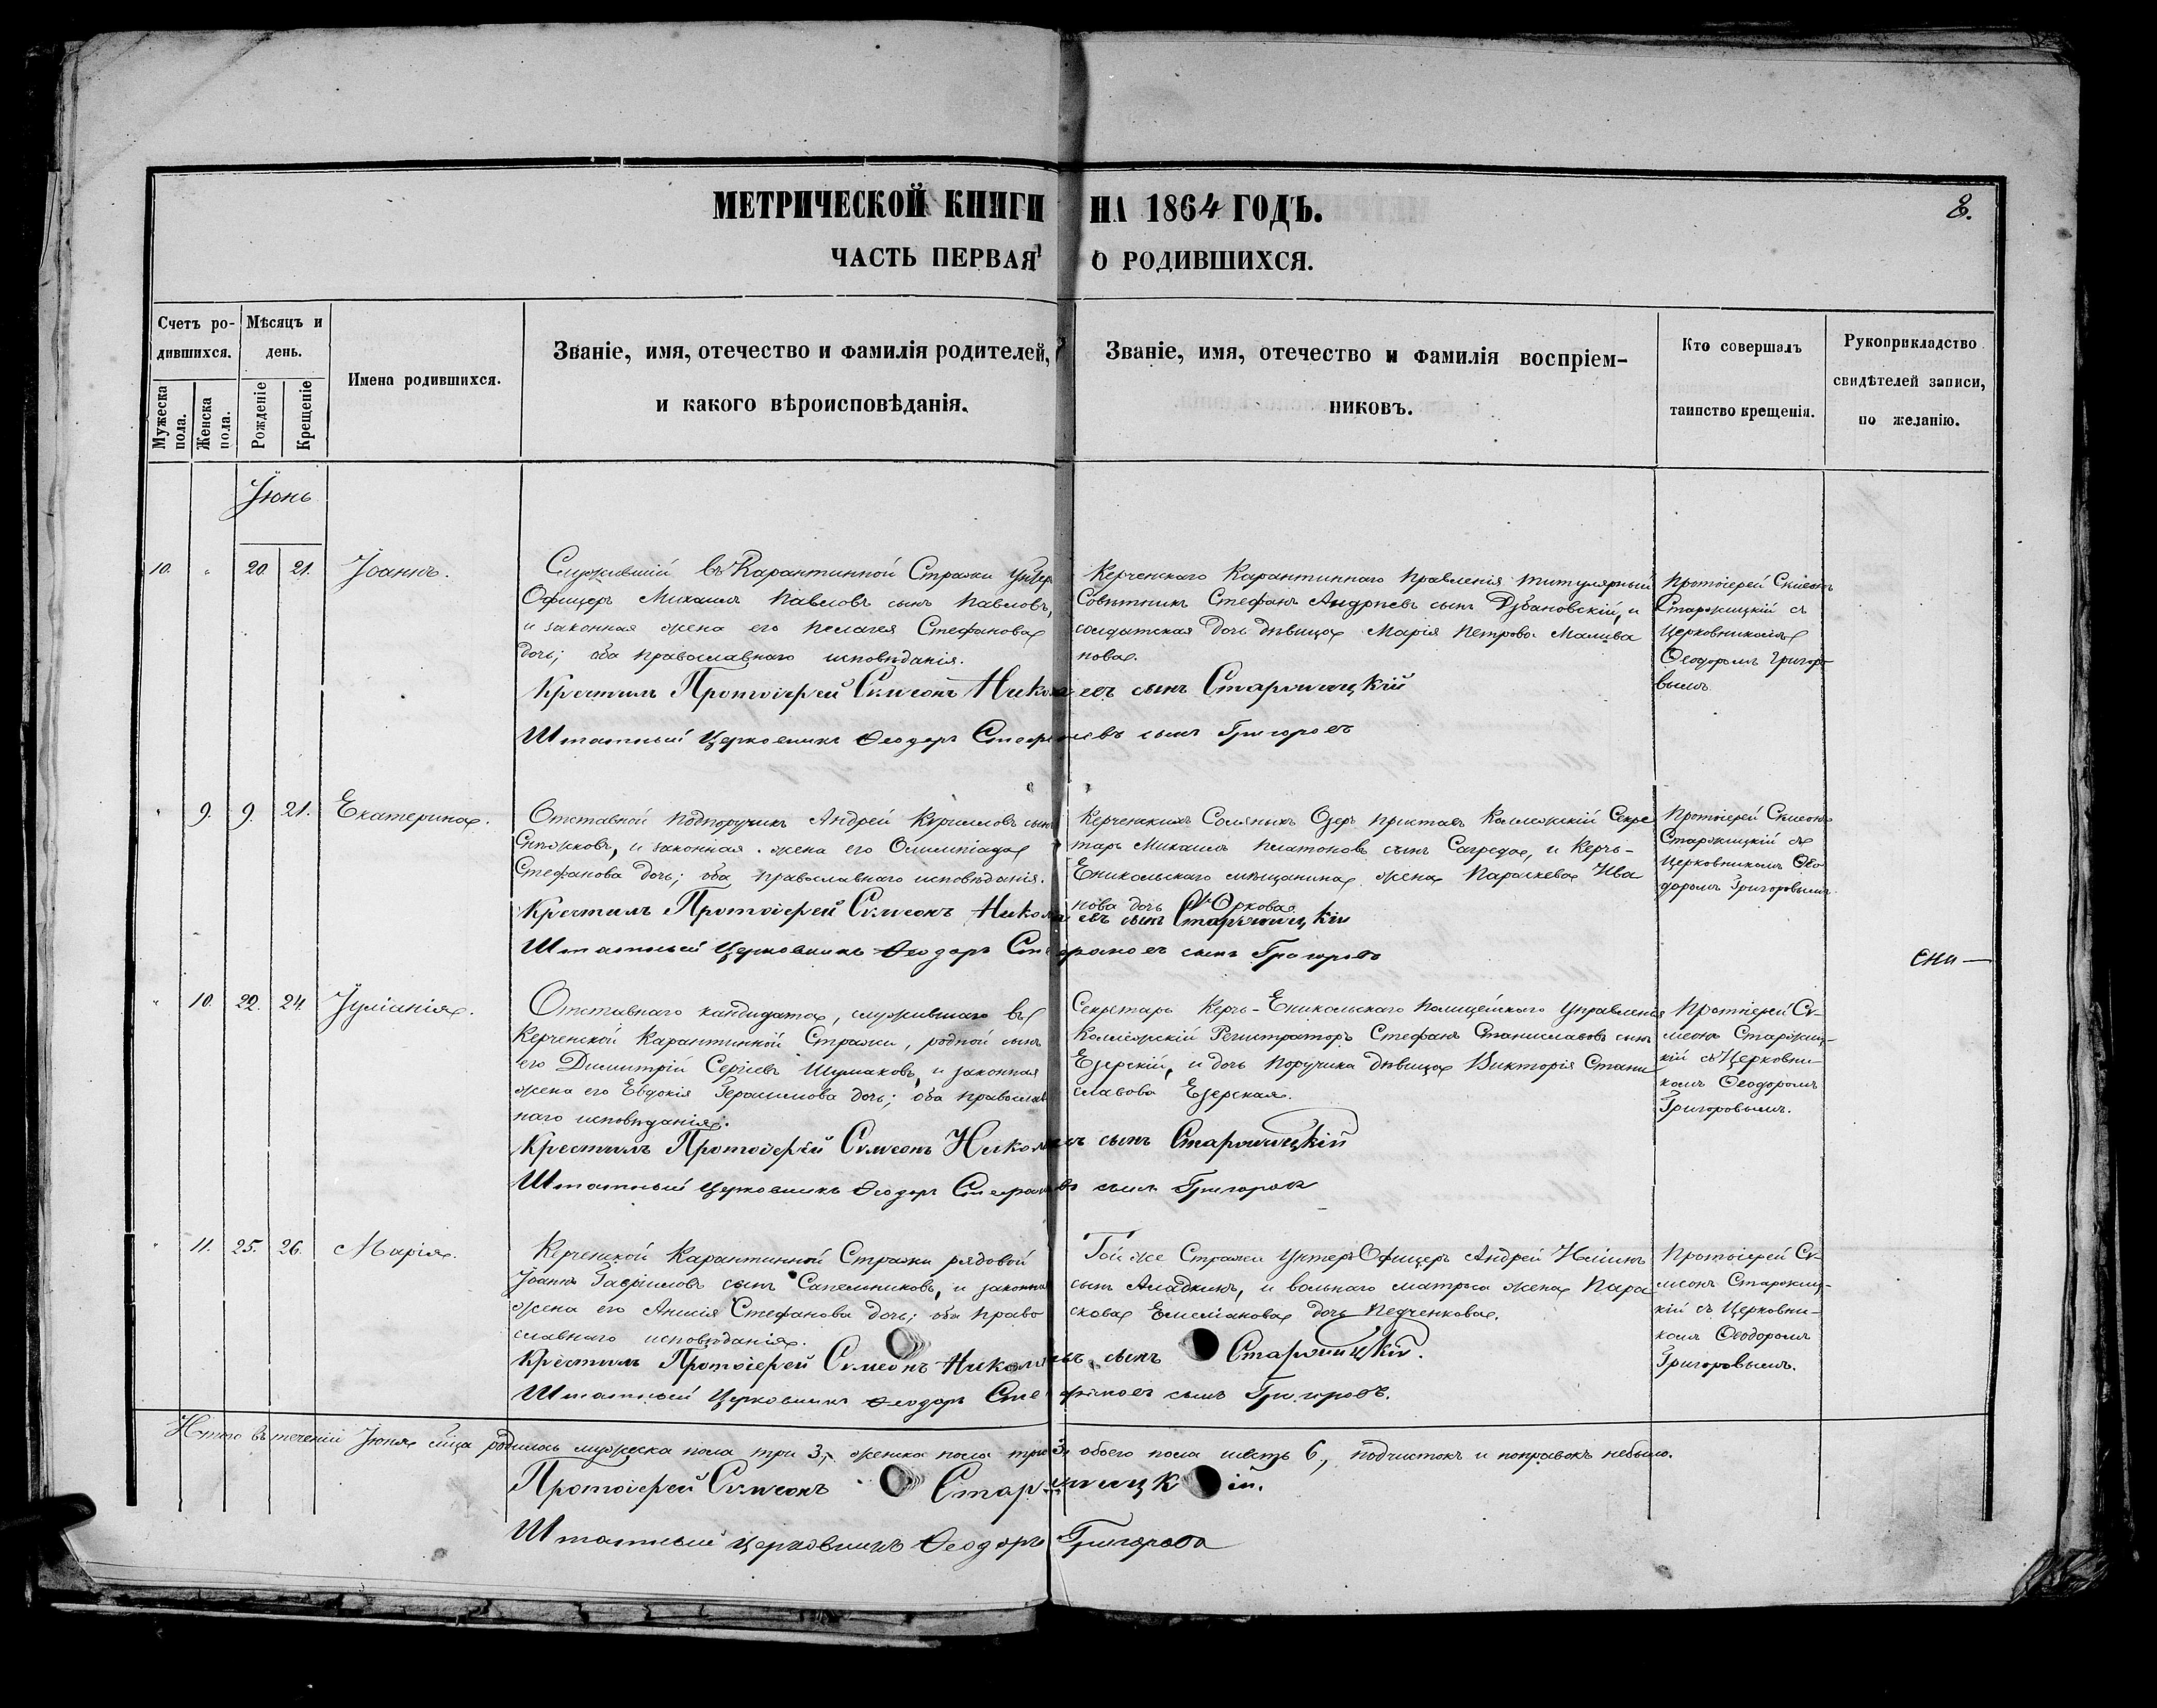 МЕТРИЧЕСКОЙ КНИГИ НА 1864 ГОДЪ.
8.
ЧАСТЬ ПЕРВАЯ О РОДИВШИХСЯ.
Счетъ родившихся.
Мужеска пола.
Женска пола.
Мѣсяцъ и день.
Рожденіе
Крещеніе
Имена родившихся.
Званіе, имя, отечество и фамилія родителей,
и какого вѣроисповѣданія.
Званіе, имя, отечество и фамилія воспріем-
никовъ.
Кто совершалъ
таинство крещенія.
Рукоприкладство
свидѣтелей записи,
по желанію.
Іюнь
10. " 20. 21. Іоаннъ.
Служившій въ Карантинной Стражи Унтеръ
Офицеръ Михаилъ Павловъ сынъ Павловъ,
и законная жена его Пелагея Стефанова
дочь; оба православнаго исповѣданія.
Керченскаго Карантиннаго Правленія титулярный
Совѣтникъ Стефанъ Андреевъ сынъ Дубановскій, и
солдатская дочь дѣвица Марія Петрова Малива
нова.
Протоіерей Симеонъ
Старожицкій съ
церковникомъ
Ѳеодоромъ Григоро
вымъ.
Крестилъ Протоіерей Симеонъ Николаевъ сынъ Старожицкій
Штатный Церковникъ Ѳеодоръ Стефановъ сынъ Григоровъ
" 9. 9. 21. Екатерина.
Отставной Подпоручикъ Андрей Кириловъ сынъ
Снѣжковъ, и законная жена его Олимпіада
Стефанова дочь; оба православнаго исповѣданія.
Керченскихъ Соляныхъ Озеръ приставъ Коллежскій Секре
тарь Михаилъ Платоновъ сынъ Сагредо, и Керчь-
Еникольскаго мѣщанина жена Параскева Ива
нова дочь
Протоіерей Симеонъ
Старожицкій съ
Церковникомъ Ѳео
доромъ Григоровымъ.
Крестилъ Протоіерей Симеонъ Николаевъ сынъ Старожицкій
Штатный Церковникъ Ѳеодоръ Стефановъ сынъ Григоровъ
" 10. 22. 24. Іуліанія.
Отставнаго кандидата, служившаго въ
Керченской Карантинной Стражи, родной сынъ
его Димитрій Сергіевъ Шумаковъ, и законная
жена его Евдокія Герасимова дочь; оба православ
наго исповѣданія.
Секретарь Керчь-Еникольскаго Полицейскаго Управленія
Коллежскій Регистраторъ Стефанъ Станиславовъ сынъ
Езерскій, и дочь Поручика дѣвица Викторія Стани
славова Езерская.
Протоіерей Си-
меонъ Старожиц-
кій съ Церковни-
комъ Ѳеодоромъ
Григоровымъ.
Крестилъ Протоіерей Симеонъ Николаевъ сынъ Старожицкій
Штатный Церковникъ Ѳеодоръ Стефановъ сынъ Григоровъ
" 11. 25. 26. Марія.
Керченской Карантинной Стражи рядовой
Іоаннъ Гавриловъ сынъ Сапельниковъ, и законная
жена его Анисія Стефанова дочь; оба право
славнаго исповѣданія.
Той же Стражи Унтеръ Офицеръ Андрей Ильинъ
сынъ Аладкинъ, и вольнаго матроса жена Пара
скева Емеліанова дочь Педченкова.
Протоіерей Си-
меонъ Старожиц-
кій съ Церковни-
комъ Ѳеодоромъ
Григоровымъ.
Крестилъ Протоіерей Симеонъ Николаевъ сынъ Старожицкій.
Штатный Церковникъ Ѳеодоръ Стефановъ сынъ Григоровъ.
Итого въ теченіи Іюня мѣсяца родилось мужеска пола три 3, женска пола три 3, обоего пола шесть 6., подчистокъ и поправокъ небыло.
Протоіерей Симеонъ Старожицкій.
Штатный Церковникъ Ѳеодоръ Григоровъ